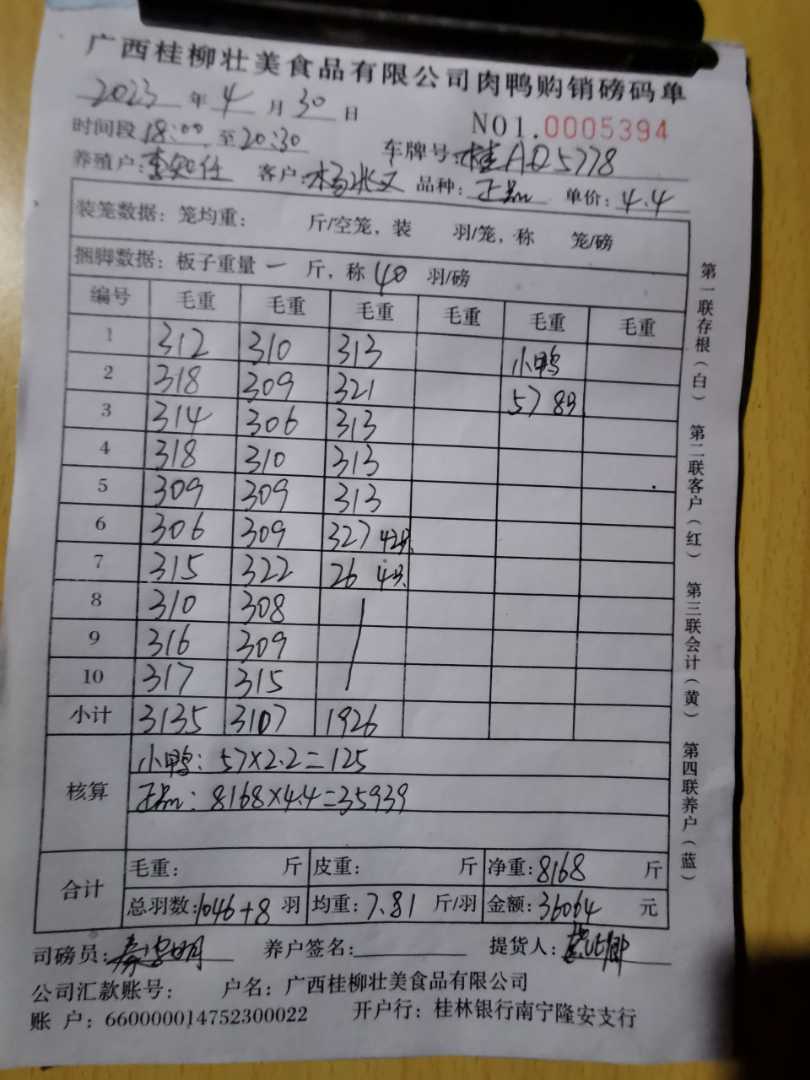 广西桂柳壮美食品有限公司肉鸭购销磅码单
2023 年 4 月 30 日
NO1.0005394
时间段 18:00 至 20:30 车牌号: 桂AD5778
养殖户: 客户: 品种: 正品 单价: 4.4
装笼数据: 笼均重: 斤/空笼, 装 羽/笼, 称 笼/磅
捆脚数据: 板子重量 一 斤, 称 40 羽/磅
编号 毛重 毛重 毛重 毛重 毛重 毛重
1 312 310 313 小鸭
2 318 309 321 57 8只
3 314 306 313
4 318 310 313
5 309 309 313
6 306 309 327 42只
7 315 322 26 4只
8 310 308
9 316 309
10 317 315
小计 3135 3107 1926
核算
小鸭: 57×2.2=125
正品: 8168×4.4=35939
合计
毛重: 斤 皮重: 斤 净重: 8168 斤
总羽数: 1046+8 羽 均重: 7.81 斤/羽 金额: 36064 元
司磅员: 养户签名: 提货人:
公司汇款账号: 户名: 广西桂柳壮美食品有限公司
账 户: 660000014752300022 开户行: 桂林银行南宁隆安支行
第一联存根(白) 第二联客户(红) 第三联会计(黄) 第四联养户(蓝)